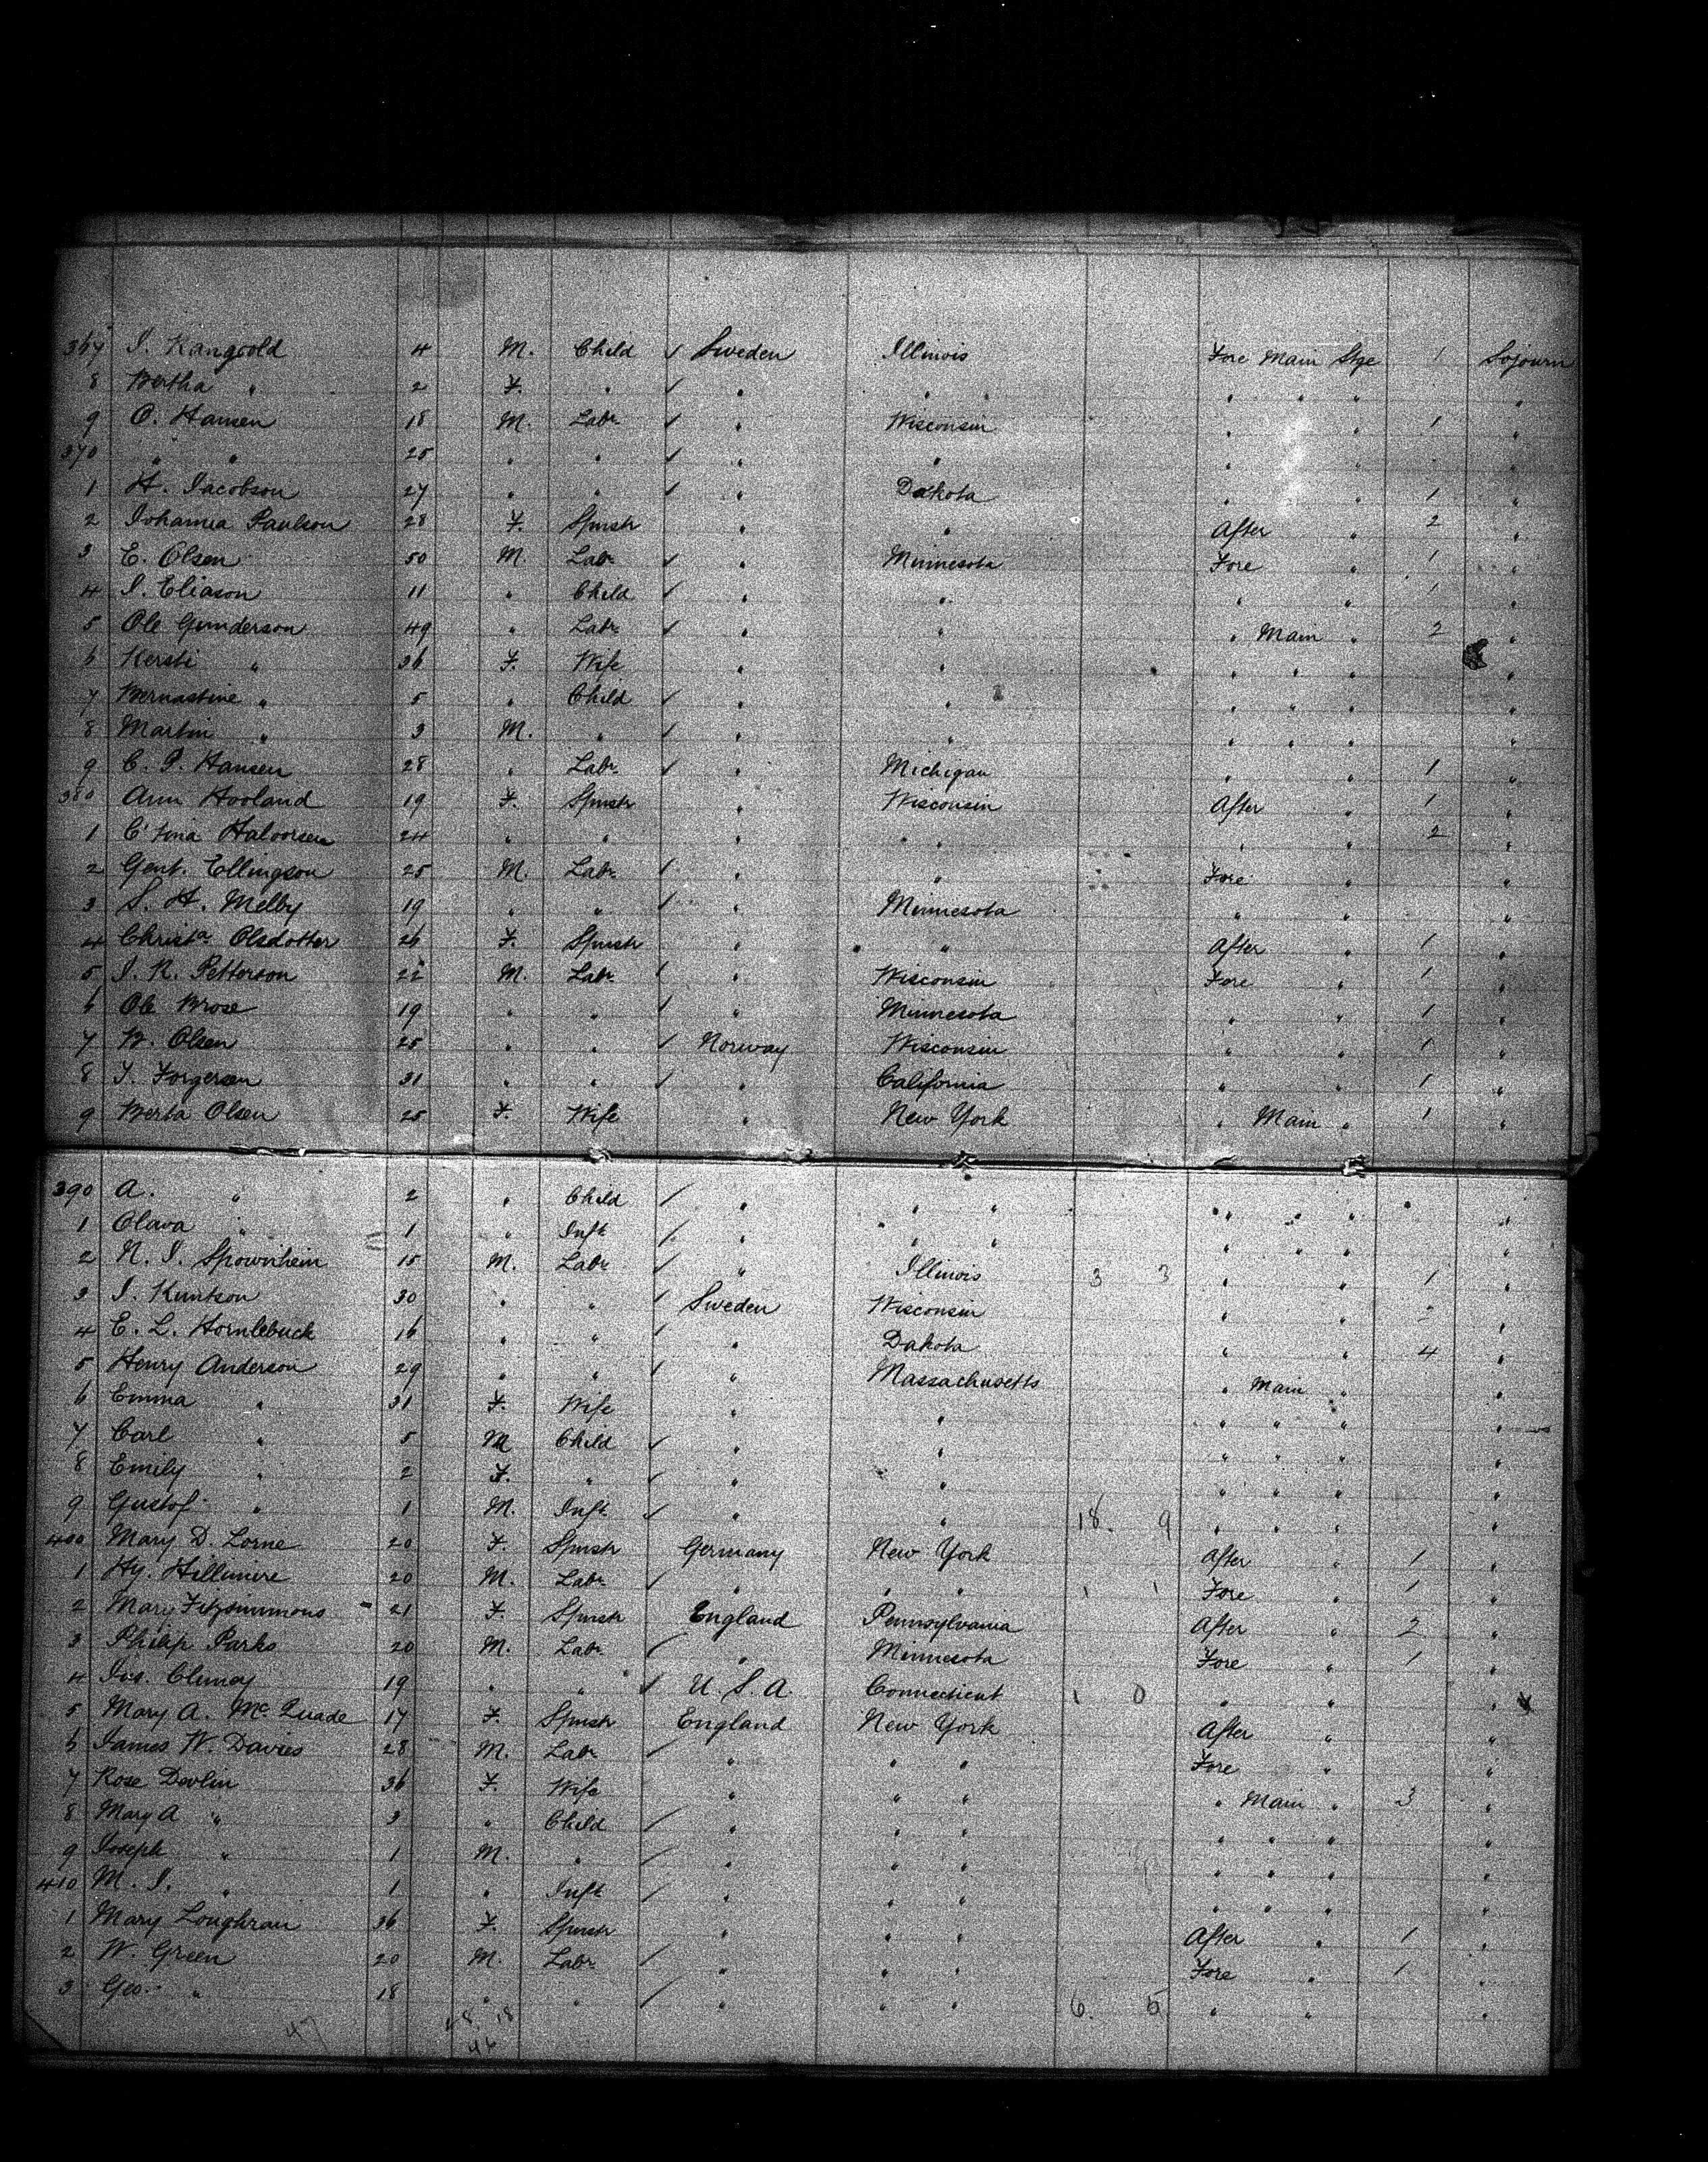 367 I. Kangoold 4 M. Child ✓ Sweden Illinois Fore Main Stge 1 Sojourn
8 Bertha " 2 F. " ✓ " " " " " " "
9 O. Hansen 18 M. Labr ✓ " Wisconsin " " 1 "
370 " " 25 " " ✓ " " " " "
1 H. Jacobson 27 " " ✓ " Dakota " " 1 "
2 Johanna Paulson 28 F. Spnstr " " After " 2 "
3 E. Olsen 50 M. Labr ✓ " Minnesota Fore " 1 "
4 I. Eliason 11 " Child ✓ " " " " 1 "
5 Ole Gunderson 49 " Labr ✓ " " " Main " 2 "
6 Kersti " 36 F. Wife " " " " " "
7 Bernastine " 5 " Child ✓ " " " " " "
8 Martin " 3 M. " ✓ " " " " " "
9 C. P. Hansen 28 " Labr ✓ " Michigan " " 1 "
380 Ann Hooland 19 F. Spnstr " Wisconsin After " 1 "
1 C'tina Halvorsen 24 " " " " " " " 2 "
2 Gent. Ellingson 25 M. Labr ✓ " " Fore " "
3 S. H. Melby 19 " " ✓ " Minnesota " " "
4 Christa Olsdotter 26 F. Spnstr " " After " 1 "
5 I. R. Petterson 22 M. Labr ✓ " Wisconsin Fore " 1 "
6 Ole Brose 19 " " ✓ " Minnesota " " 1 "
7 B. Olsen 25 " " ✓ Norway Wisconsin " " 1 "
8 T. Torgersen 31 " " ✓ " California " " 1 "
9 Berta Olsen 25 F. Wife " New York " Main " 1 "
390 A. " 2 " Child ✓ " " " " " " "
1 Olava " 1 " Inft ✓ " " " " " " "
2 N. I. 15 M. Labr ✓ " Illinois 3 3 " " 1 "
3 I. Kuntson 30 " " ✓ Sweden Wisconsin " " 2 "
4 E. L. Hornlebuck 16 " " ✓ " Dakota " " 4 "
5 Henry Anderson 29 " " ✓ " Massachusetts " Main " "
6 Emma " 31 F. Wife " " " " " "
7 Carl " 5 M Child ✓ " " " " " "
8 Emily " 2 F. " ✓ " " " " " "
9 Gustof " 1 M. Inft ✓ " " 18. 9 " " " "
400 Mary D. Lorne 20 F. Spnstr Germany New York After " 1 "
1 Hy. Hillmire 20 M. Labr ✓ " " " 1 1 Fore " 1 "
2 Mary Fitzsimmons 21 F. Spnstr England Pennsylvania After " 2 "
3 Philip Parks 20 M. Labr ✓ " Minnesota Fore " 1 "
4 Jno. Clunay 19 " " ✓ U. S. A. Connecticut 1 0 " " "
5 Mary A. McQuade 17 F. Spnstr England New York After " "
6 James W. Davies 28 M. Labr ✓ " " " Fore " "
7 Rose Devlin 36 F. Wife " " " " Main " 3 "
8 Mary A " 3 " Child ✓ " " " " " " "
9 Joseph " 1 M. " ✓ " " " " " " "
410 M. I. " 1 " Inft ✓ " " " " " " "
1 Mary Loughran 36 F. Spnstr " " " After " 1 "
2 W. Green 20 M. Labr ✓ " " " Fore " 1 "
3 Geo. " 18 " " ✓ " " " 6. 5 " " "
47 28. 18
46